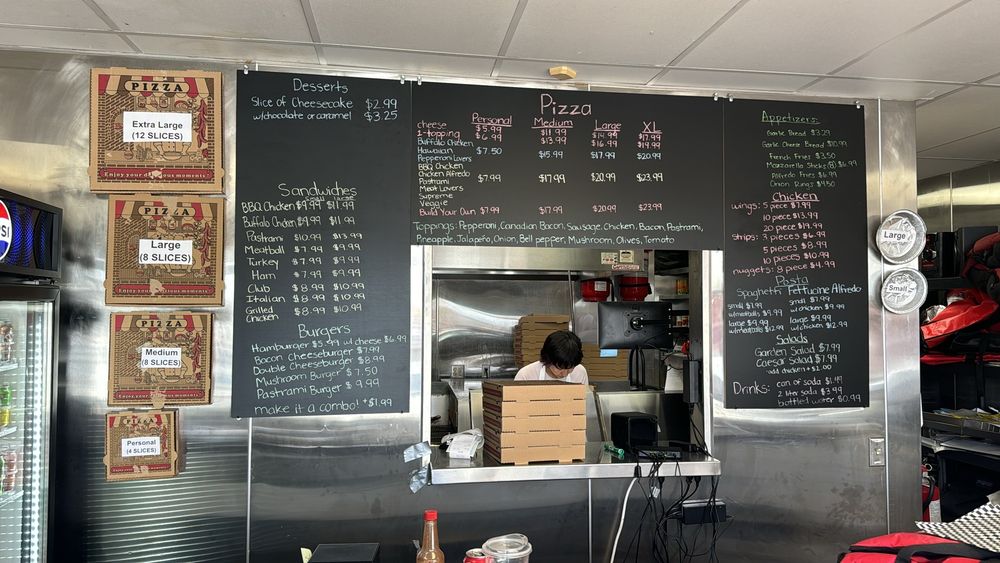 PIZZA
Extra Large
(12 SLICES)
Enjoy your delicious moments!
PIZZA
Large
(8 SLICES)
PIZZA
Medium
(8 SLICES)
Personal
(4 SLICES)
Desserts
Slice of Cheesecake $2.99
w/chocolate or caramel $3.25
Sandwiches
BBQ Chicken $9.99 $11.99
Buffalo Chicken $9.99 $11.99
Pastrami $10.99 $13.99
Meatball $7.99 $9.99
Turkey $7.99 $9.99
Ham $7.99 $9.99
Club $8.99 $10.99
Italian $8.99 $10.99
Grilled Chicken $8.99 $10.99
Burgers
Hamburger $5.99 w/ cheese $6.99
Bacon Cheeseburger $7.99
Double Cheeseburger $8.99
Mushroom Burger $7.50
Pastrami Burger $9.99
make it a combo! +$1.99
Pizza
Personal Medium Large XL
cheese $5.99 $11.99 $14.99 $17.99
1-topping $6.99 $13.99 $16.99 $19.99
Buffalo Chicken
Hawaiian $7.50 $15.99 $17.99 $20.99
Pepperoni Lovers
BBQ Chicken
Chicken Alfredo
Pastrami $7.99 $17.99 $20.99 $23.99
Meat Lovers
Supreme
Veggie
Build Your Own $7.99 $17.99 $20.99 $23.99
Toppings: Pepperoni, Canadian Bacon, Sausage, Chicken, Bacon, Pastrami,
Pineapple, Jalapeño, Onion, Bell pepper, Mushroom, Olives, Tomato
Appetizers
Garlic Bread $3.29
Garlic Cheese Bread $10.99
French Fries $3.50
Mozzarella Sticks (8) $6.99
Alfredo Fries $6.99
Onion Rings $4.50
Chicken
wings: 5 piece $7.99
10 piece $13.99
20 piece $19.99
strips: 3 pieces $6.99
5 pieces $8.99
10 pieces $10.99
nuggets: 8 piece $4.99
Pasta
Spaghetti Fettucine Alfredo
small $7.99 small $7.99
w/meatballs $9.99 w/chicken $9.99
large $9.99 large $9.99
w/meatballs $12.99 w/chicken $12.99
Salads
Garden Salad $7.99
Caesar Salad $7.99
add chicken +$1.00
Drinks: can of soda $1.49
2 liter soda $3.99
bottled water $0.99
Large
Small